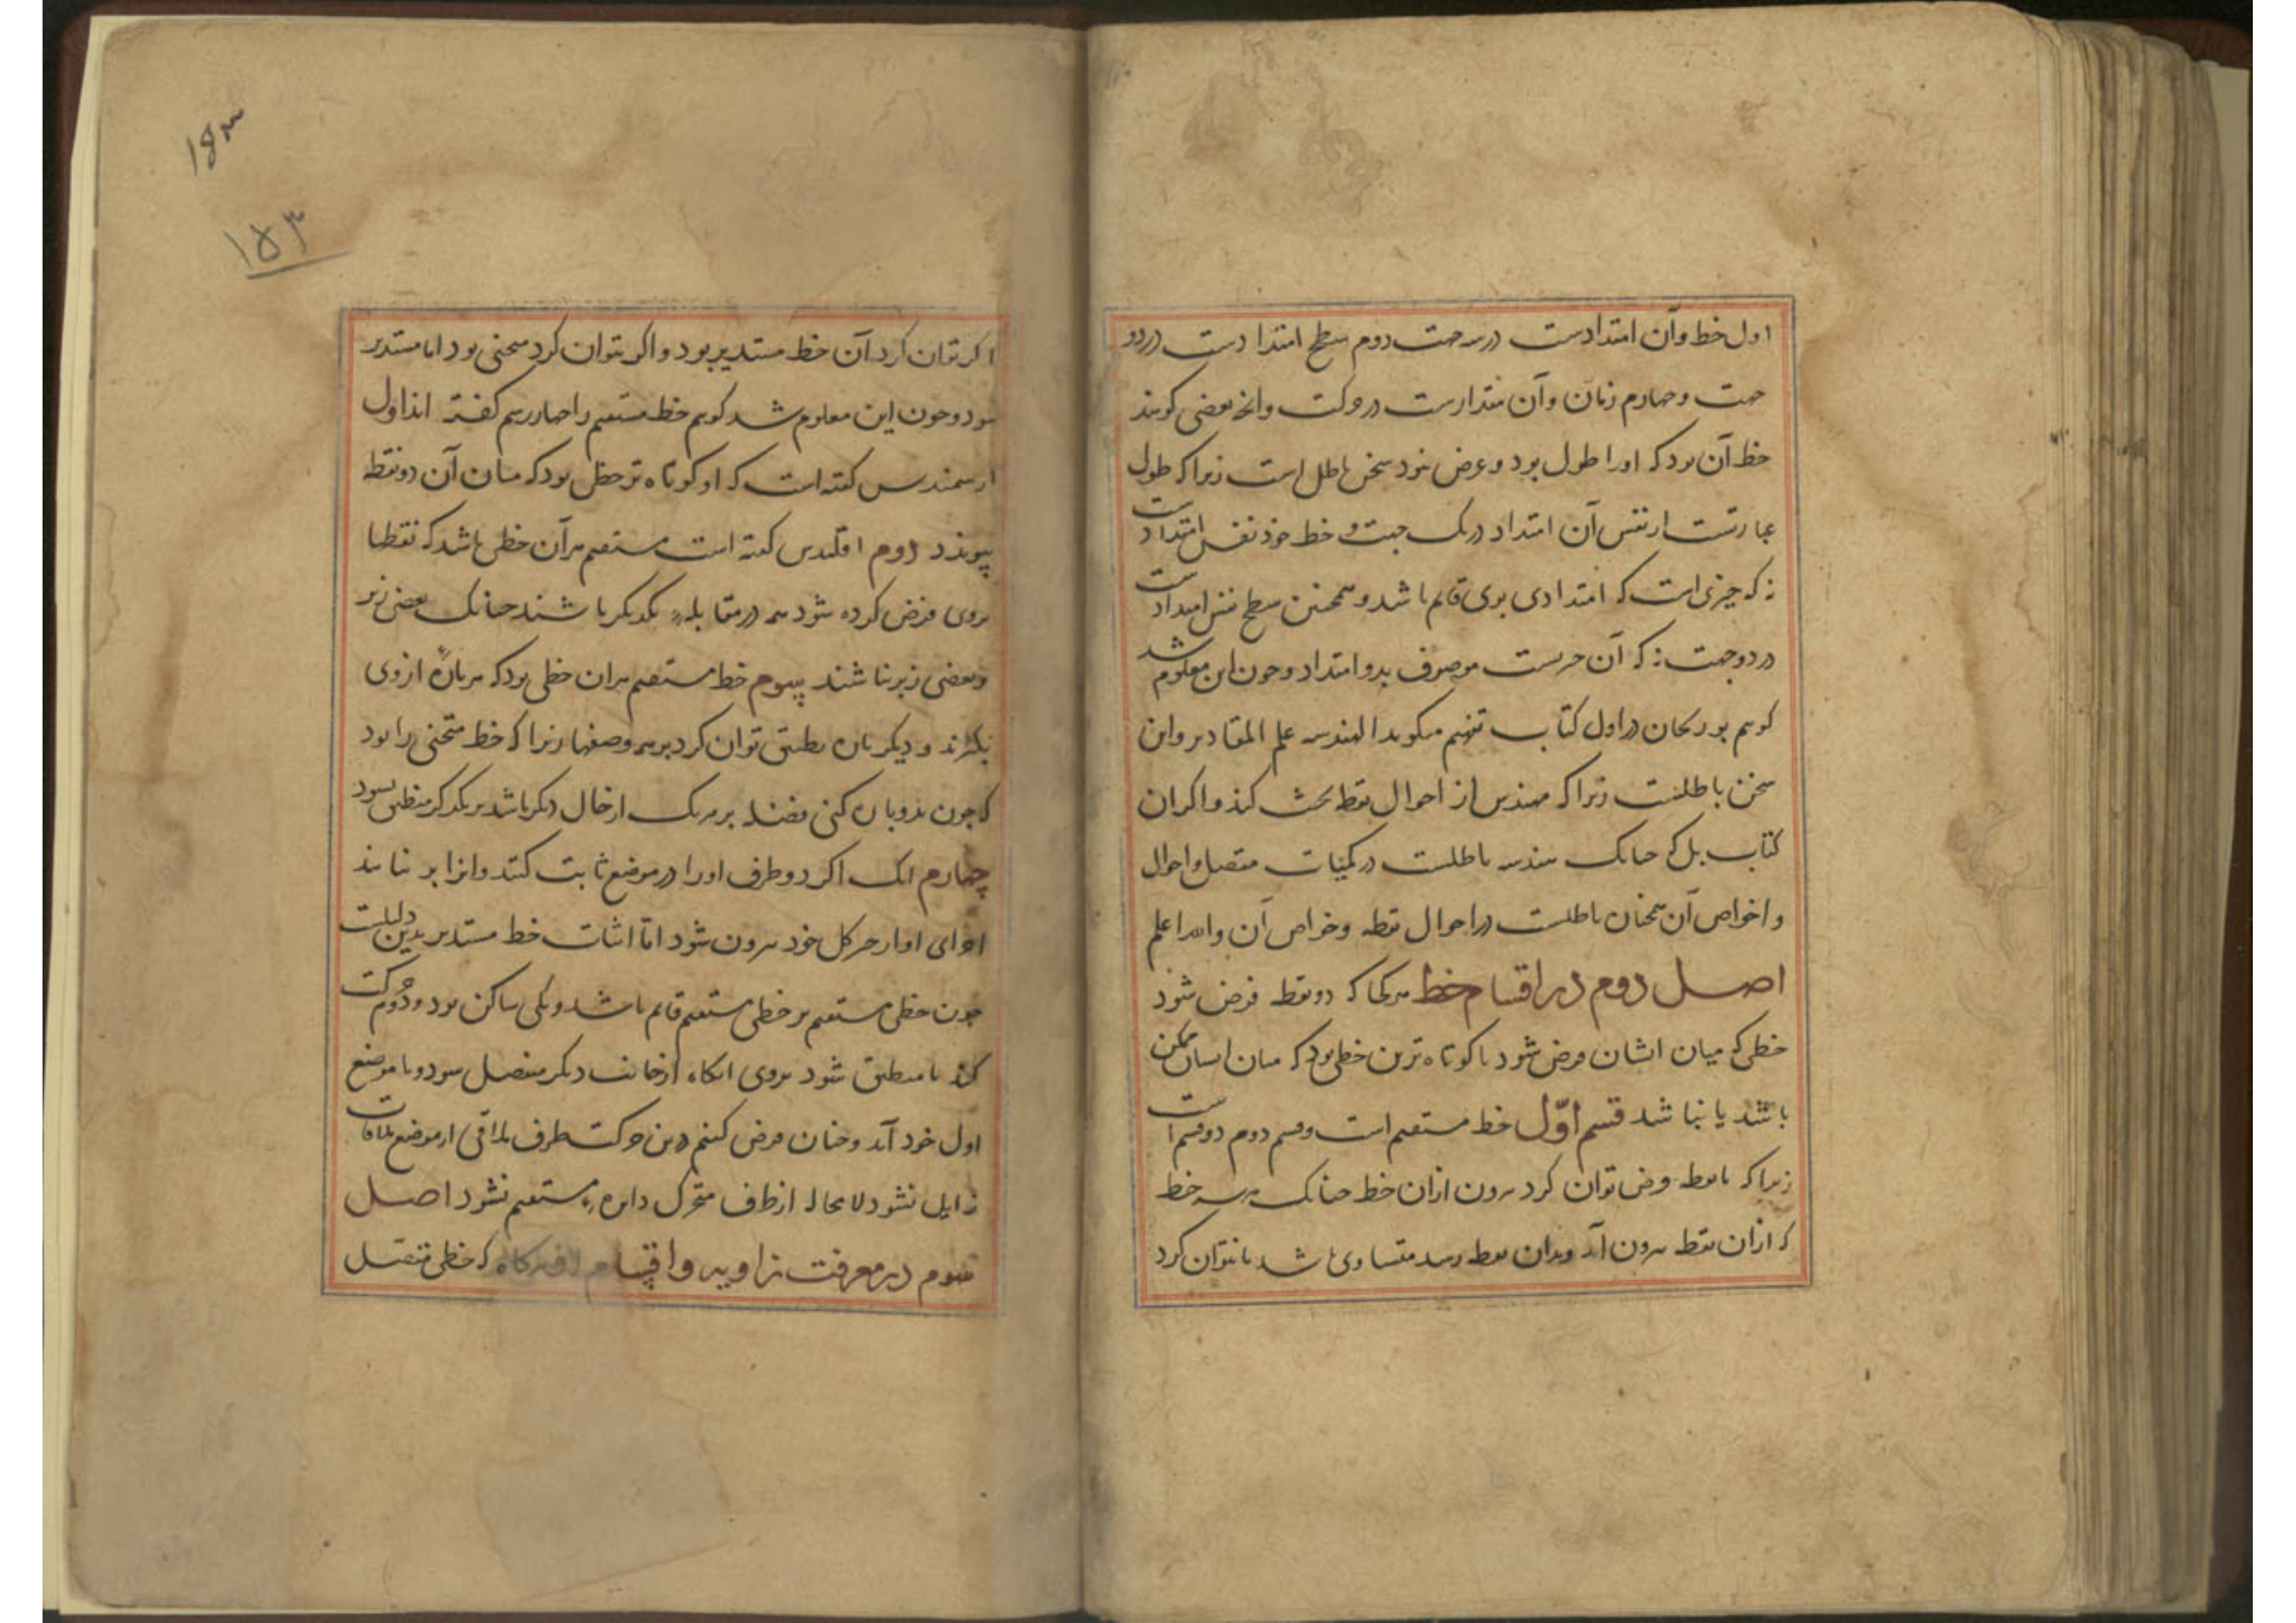 اول خط وآن امتدادست در سه جهت دوم سطح امتدادست در دو
جهت و چهارم زمان وآن مقدارست در حرکت وانچه بعضی کویند
خط آن بود که اورا طول بود و عرض نبود سخن باطل است زیرا که طول
عبارتست از نفس آن امتداد در یک جهت و خط خود نفس امتدادست
نه که چیزی است که امتدادی بوی قایم باشد و همچنین سطح نفس امتدادست
در دو جهت نه که آن چیزیست موصوف بدو امتداد و چون این معلوم شد
کوییم بوریحان در اول کتاب تفهیم میکوید الهندسه علم المقادیر واین
سخن باطلست زیرا که مهندس از احوال نقطه بحث کند و اکر ان
کتاب بل که چنانک هندسه باطلست در کمیات متصل و احوال
و اخواص آن همچنان باطلست در احوال نقطه وخواص آن والله اعلم
اصل دوم در اقسام خط هر کجا که دو نقطه فرض شود
خطی که میان ایشان فرض شود یا کوتاه ترین خطی بود که میان ایشان ممکن
باشد یا نباشد قسم اوّل خط مستقیم است وقسم دوم دو قسم است
زیرا که یا نقطه فرض توان کرد بیرون ازان خط چنانک هر سه خط
که ازان نقطه بیرون آید و بدان نقطه رسد متساوی باشد یا نتوان کرد
۱۵۳
۱۵۳
اکر توان کرد آن خط مستدیر بود و اکر نتوان کرد منحنی بود اما مستدیر
بود و چون این معلوم شد کوییم خط مستقیم را چهار رسم کفته اند اول
ارشمندس کفته است که او کوتاه تر خطی بود که میان آن دو نقطه
پیوندد دوم اقلیدس کفته است مستقیم هر آن خطی باشد که نقطها
بروی فرض کرده شود همه در مقابله یکدیکر باشند چنانک بعضی زبر
وبعضی زیر نباشند سوم خط مستقیم هران خطی بود که هر پاره ازوی
بکیرند و دیکر پاره منطبق توان کرد بر همه وضعها زیرا که خط منحنی را بود
که چون بدو پاره کنی بر یکدیکر منطبق نشود
چهارم انک اکر دو طرف اورا در موضع ثابت کنند وانرا بر نتابند
اجزای او از حیز کل خود بیرون نشود امّا اثبات خط مستدیر بدین دلیلست
چون خطی مستقیم بر خطی مستقیم قایم باشد ویکی ساکن بود و دوم حرکت
کند تا منطبق شود بروی انکاه از جانب دیکر منفصل شود و با موضع
اول خود آید و چنان فرض کنیم درین حرکت طرف ملاقی از موضع ملاقات
زایل نشود لا محاله از طرف متحرک دایره مستقیم نشود اصل
سوم در معرفت زاویه واقسام او هرکاه که خطی متصل